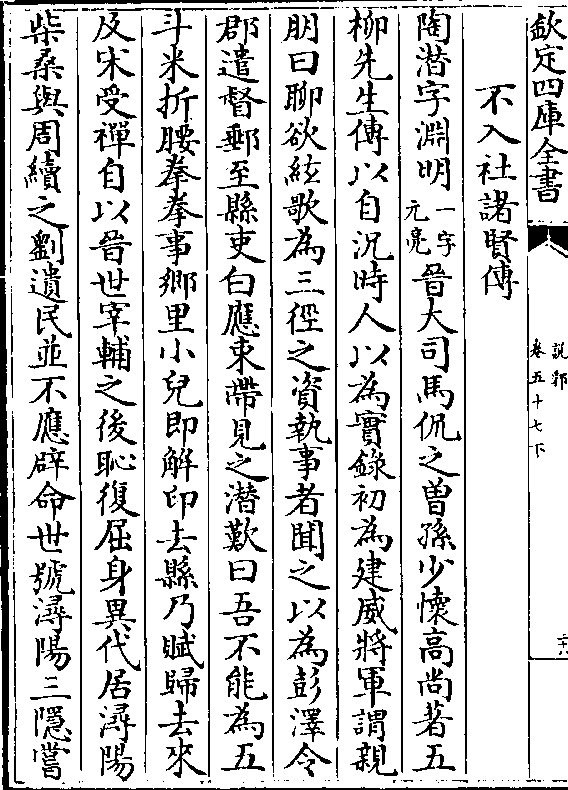 欽定四庫全書
說郛
卷五十七下
二六
不入社諸賢傳
陶潛字淵明一字元亮晉大司馬侃之曽孫少懷高尚著五
柳先生傳以自況時人以為實錄初為建威將軍謂親
朋曰聊欲絃歌為三徑之資執事者聞之以為彭澤令
郡遣督郵至縣吏白應束帶見之潛歎曰吾不能為五
斗米折腰拳拳事鄉里小兒即解印去縣乃賦歸去來
及宋受禪自以晉世宰輔之後恥復屈身異代居潯陽
柴桑與周續之劉遺民並不應辟命世號潯陽三隱嘗